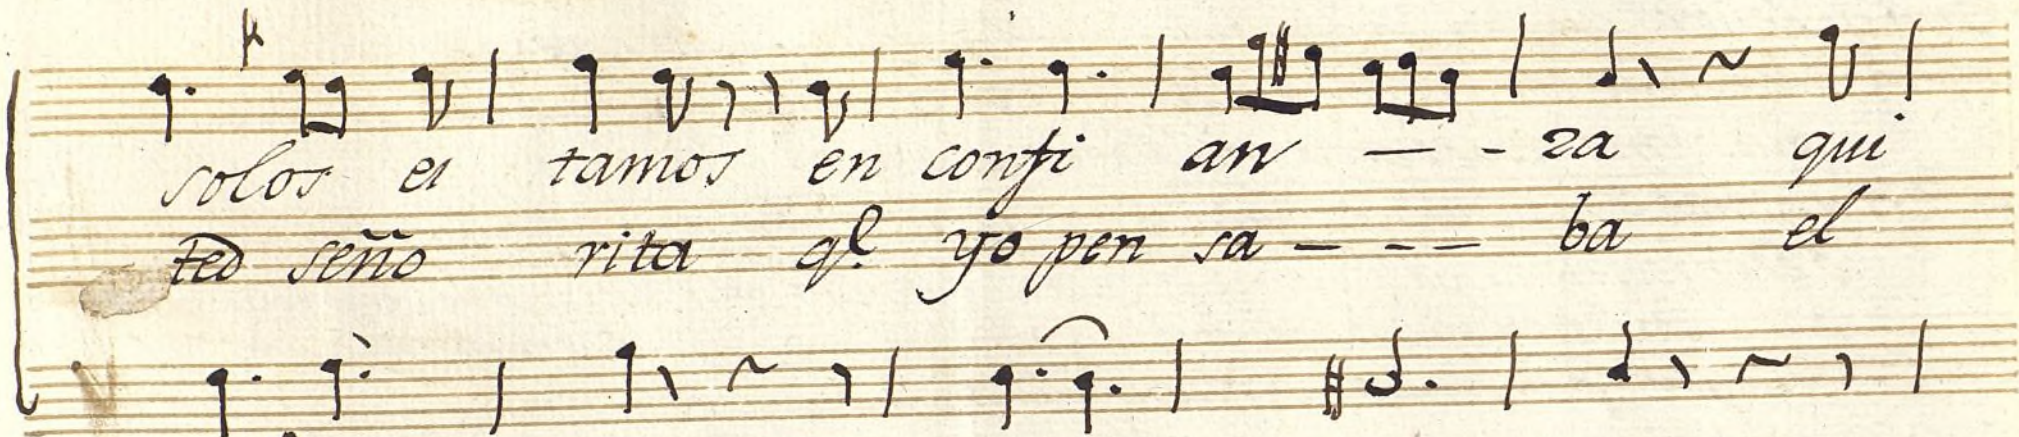 solos es tamos en confi an - - - za qui
ted seño rita qe. yo pen sa - - - ba el